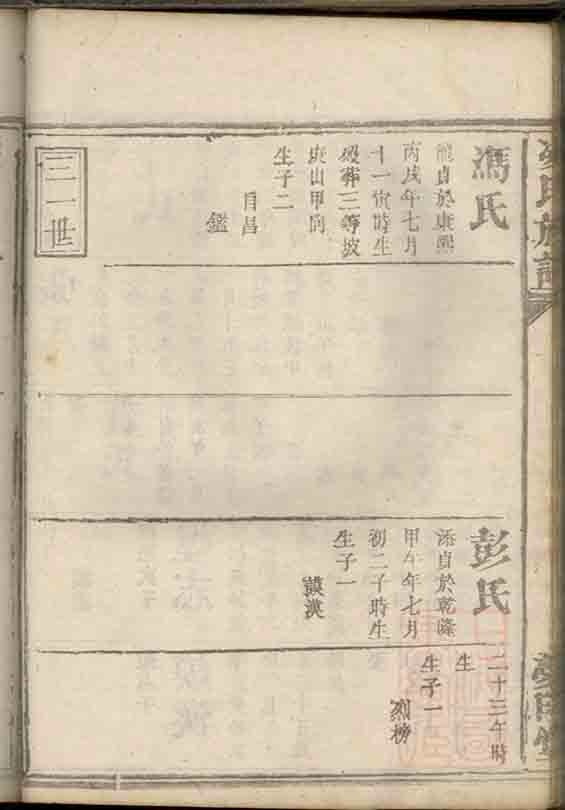 馮氏
貞於康熙
丙戌年七月
十一寅時生
歿葬三等坡
庚山甲向
生子二
目昌
鑑
彭氏
添貞於乾隆
甲午年七月
初二子時生
生子一
謨洪
二十三午時
生
生子一
烈榜
三一世
氏族譜